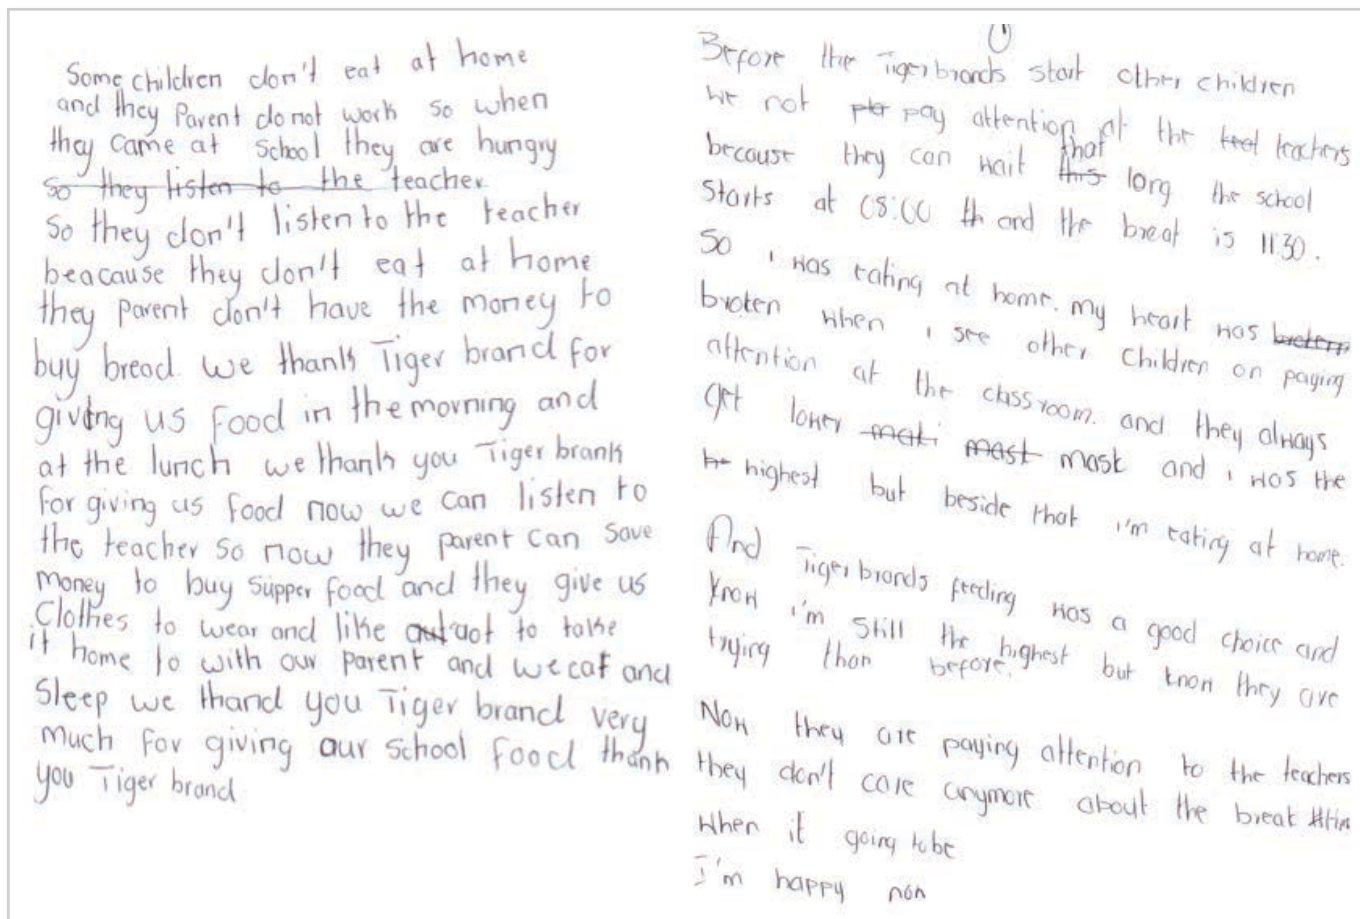 Some children don't eat at home
and they Parent do not work so when
they came at school they are hungry
so they listen to the teacher
so they don't listen to the teacher
beacause they don't eat at home
they parent don't have the money to
buy bread. we thank Tiger brand for
giving us food in the morning and
at the lunch we thank you Tiger brank
for giving us food now we can listen to
the teacher so now they parent can save
money to buy supper food and they give us
Clothes to wear and like to take
it home to with our parent and we eat and
Sleep we thand you Tiger brand very
much for giving our school food thank
you Tiger brand
Before the Tigerbrands start other children
we not pay attention at the teachers
because they can wait this that long the school
starts at 08:00 th and the breat is 11:30.
So i was eating at home. my heart was broken
broken when i see other children on paying
attention at the classroom. and they always
get lower mask and i was the
highest but beside that i'm eating at home.
And Tigerbrands feeding was a good choice and
know i'm still the highest but know they are
trying than before.
Now they are paying attention to the teachers
they don't care anymore about the break
when it going to be
I'm happy now